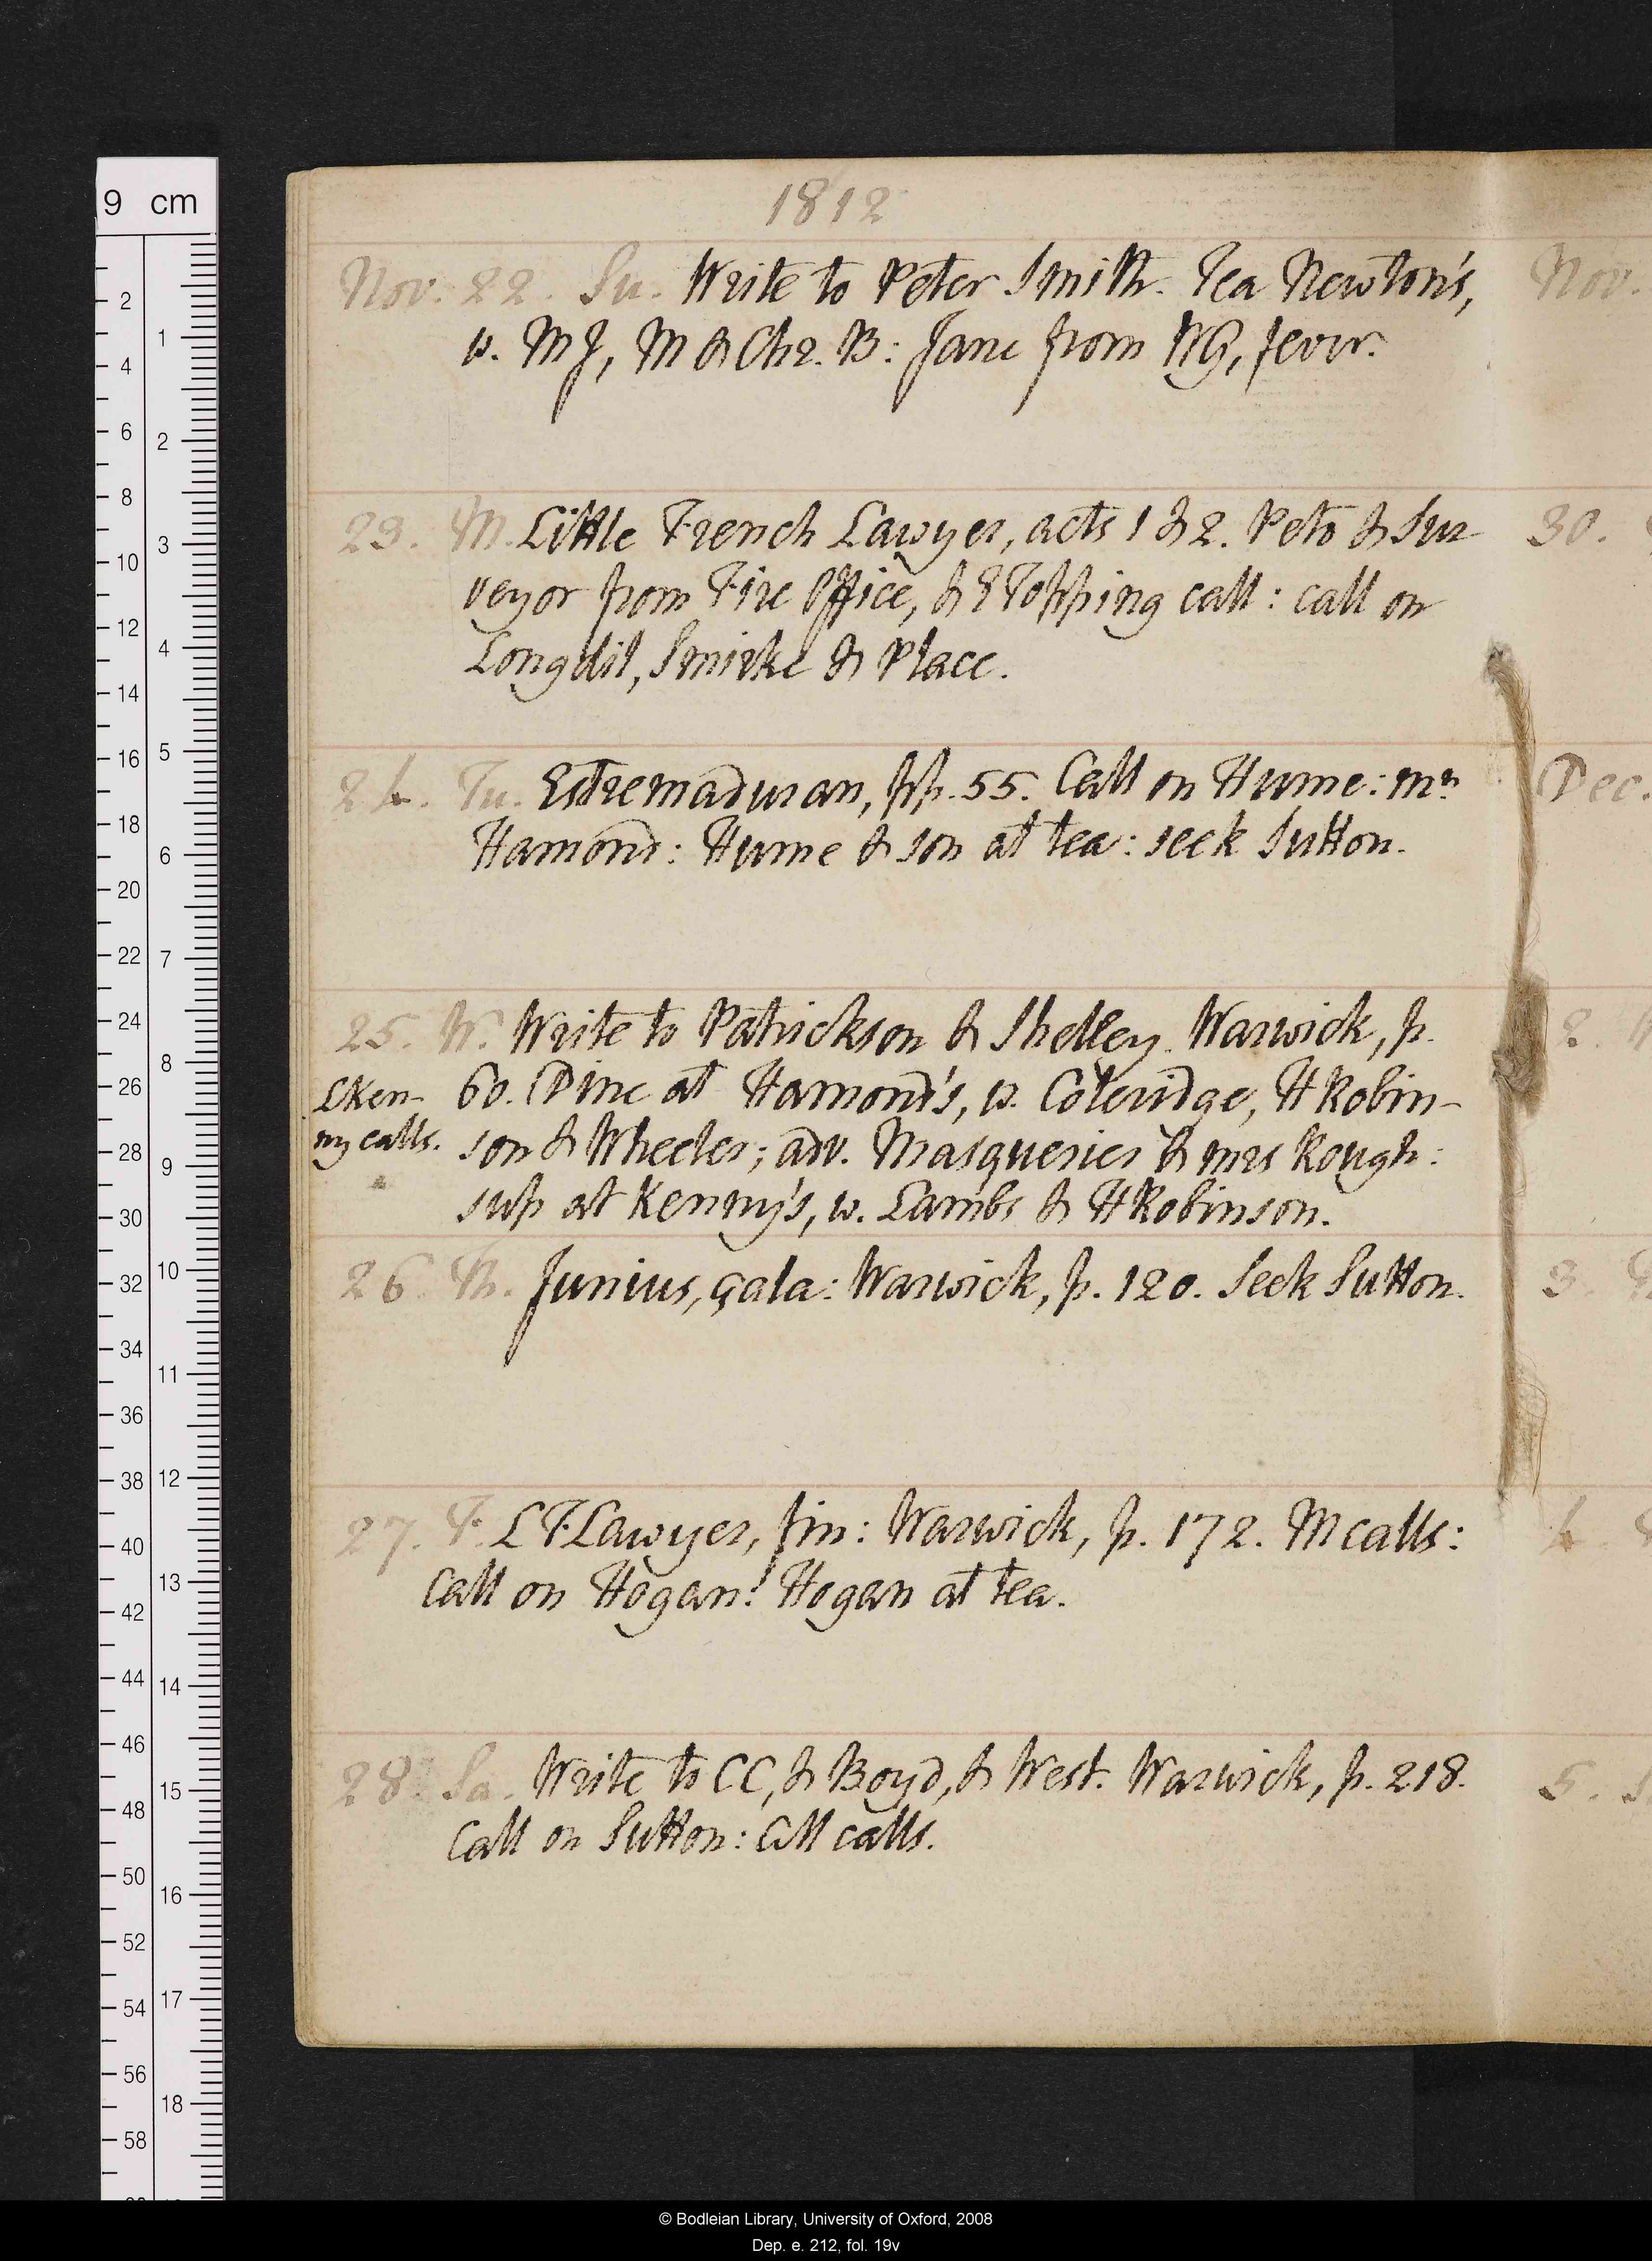 1812
Nov. 22. Su. Write to Peter Smith. Tea Newton's,
w. MJ, M & Chr. B: Jane from WG, fever.
23. M. Little French Lawyer, acts 1 & 2. Peto & Sur-
veyor from Fire Office, & E Topping call: call on
Longdil, Smirke & Place.
24. Tu. Estremaduran, pp. 55. Call on Hume: mrs
Hamond: Hume & son at tea: seek Sutton.
25. W. Write to Patrickson & Shelley. Warwick, p.
60. Dine at Hamond's, w. Coleridge, H Robin-
son & Wheeler; adv. Masqueries & mrs Rough:
sup at Kenny's, w. Lambs & H Robinson.
LKen-
ny calls.
26. Th. Junius, gala: Warwick, p. 120. Seek Sutton.
27. F. L F Lawyer, fin: Warwick, p. 172. M calls:
Call on Hogan: Hogan at tea.
28. Sa. Write to CC, & Boyd, & West. Warwick, p. 218.
Call on Sutton: CM calls.
Nov.
30.
Dec.
2.
3.
4.
5.
9 cm
2
4
6
8
10
12
14
16
18
20
22
24
26
28
30
32
34
36
38
40
42
44
46
48
50
52
54
56
58
1
2
3
4
5
6
7
8
9
10
11
12
13
14
15
16
17
18
© Bodleian Library, University of Oxford, 2008
Dep. e. 212, fol. 19v